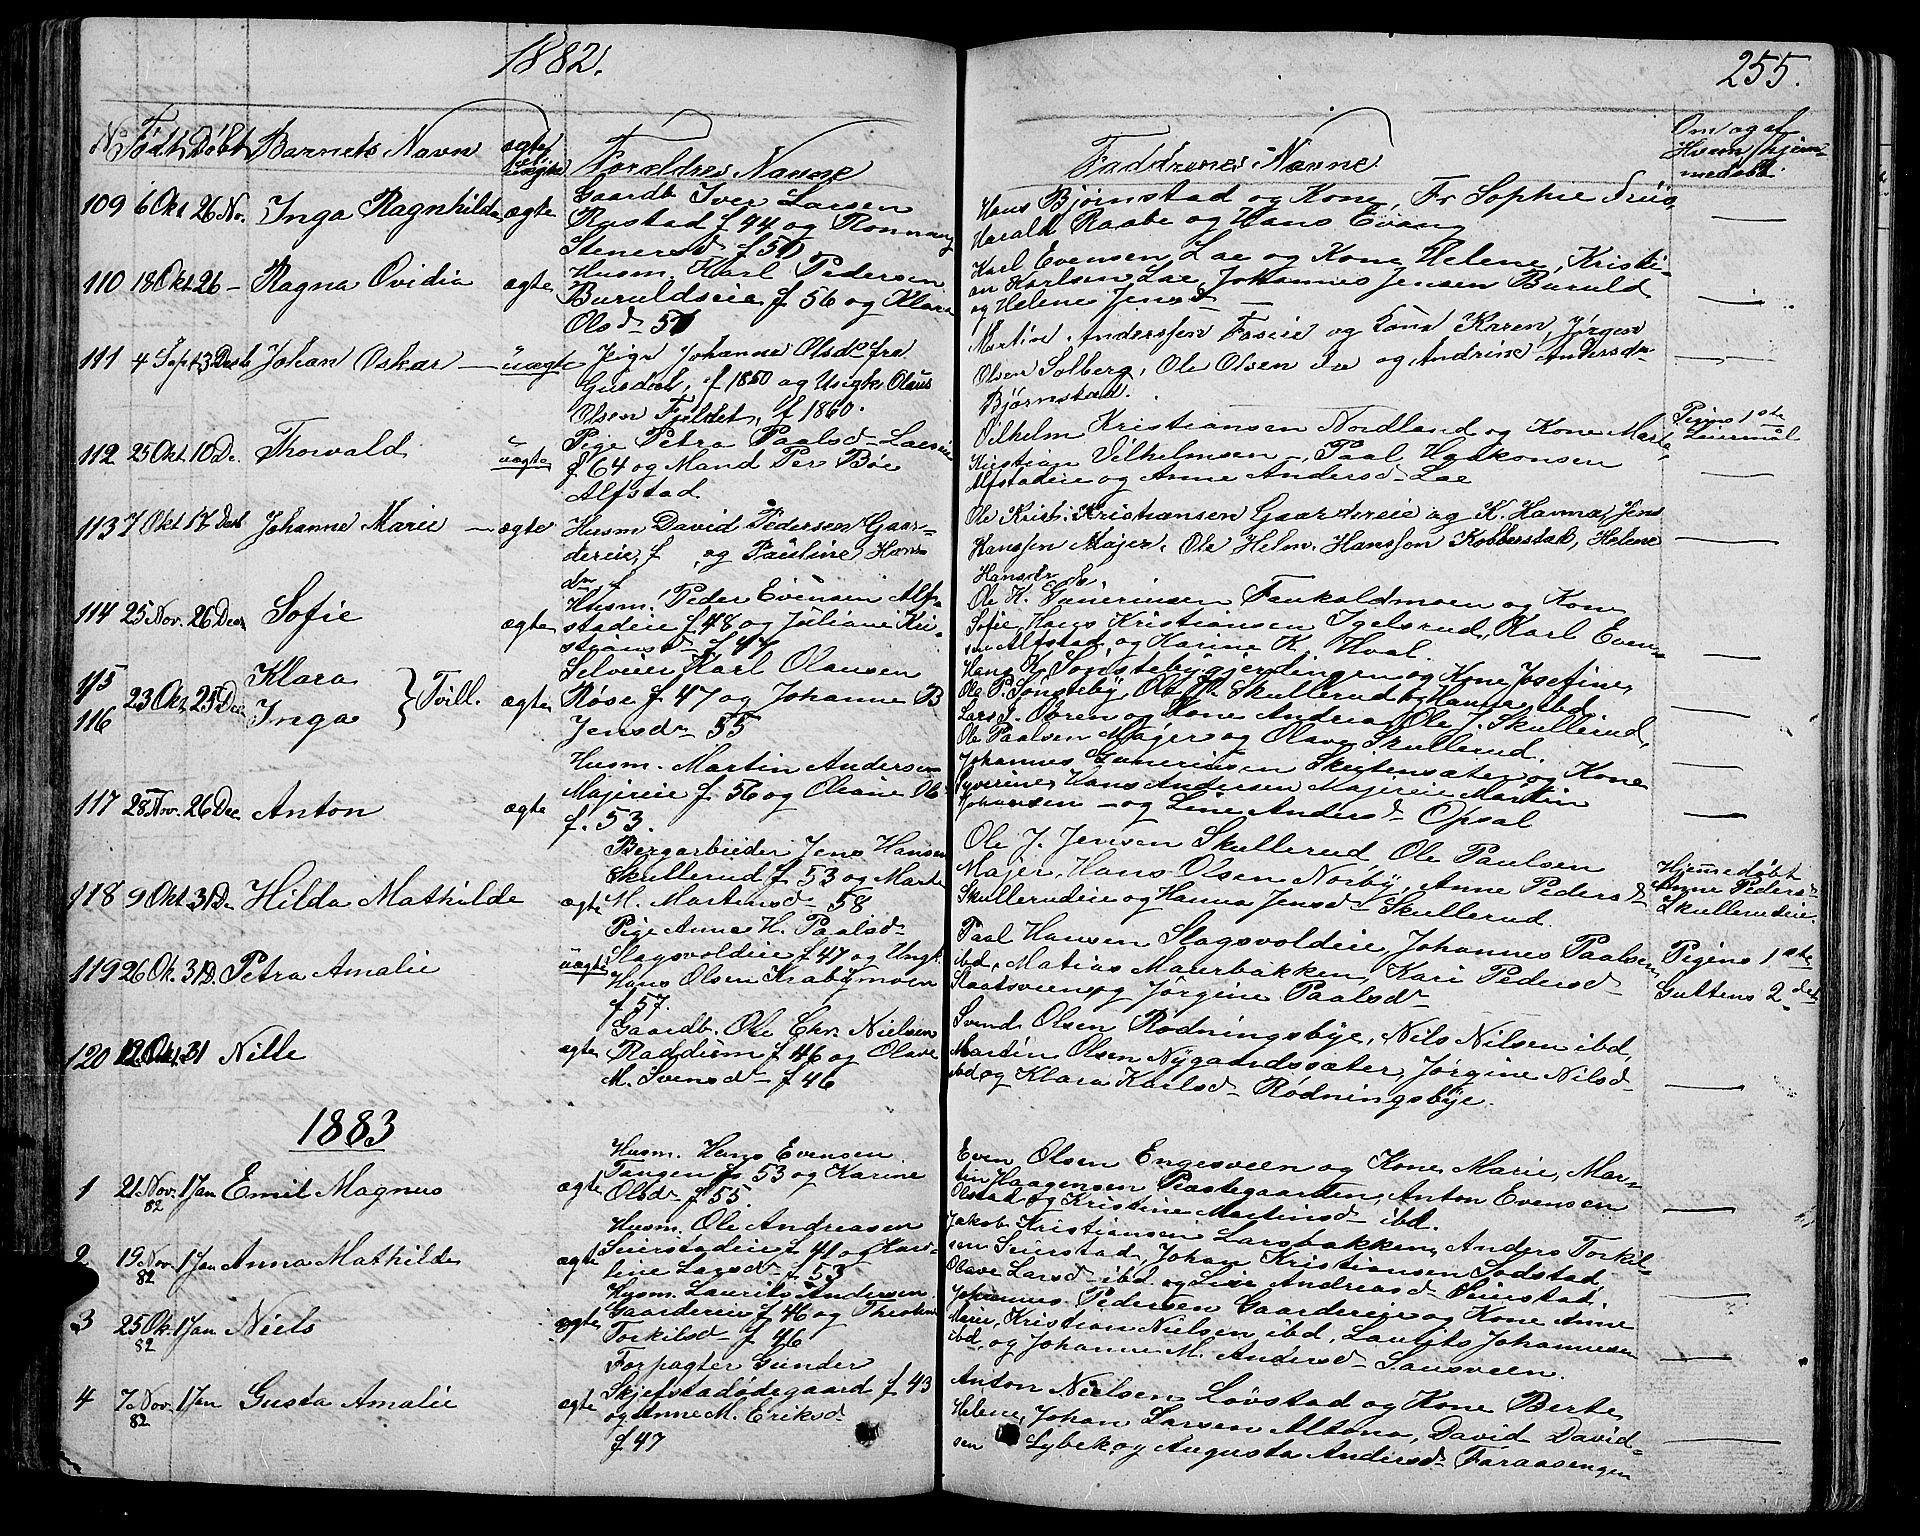 1882.
255.
No Født Døbt Barnets Navn ægte uægte Forældres Navne
Faddrenes Navne
Om og af Hvem hjemmedøbt
109 6 Okt 26 Nv. Inga Ragnhilda ægte Gaardb Iver Larsen
Rustad f 44 og Ronnaug
Stenersd f 50
Hans Bjørnstad og Kone, Fr Sophie
Harald Raabe og Hans Evang
110 18 Okt 26 – Ragna Ovidia ægte Husm. Karl Pedersen
Buruldseie f 56 og Klara
Olsd 57
Karl Evensen Lae og Kone Helene, Kristi-
an Karlsen Lae, Johannes Jensen Buruld
og Helene Jensd
111 4 Sept 3 Decb Johan Oskar – uægte Pige Johanne Olsd fra
Gusdal, f 1850 og Ungk Olaus
Olsen Fjeldet, f 1860.
Martin Anderssen Foseie og Kone Karen, Jørgen
Olsen Solberg, Ole Olsen Lae og Andrine Andersdr
Bjørnstad.
112 25 Okt 10 De. Thorvald uægte Pige Petra Paalsd Laeseie
f 64 og Mand Per Bøe
Alfstad.
Vilhelm Kristiansen Nordland og Kone Marta,
Kristian Vilhelmsen –, Paal Haakonsen
Alfstadeie og Anne Andersd Lae
Pigens 1ste
Leiermål
113 7 Okt 17 Decb Johanne Marie – ægte Husm David Pedersen Gaar-
dereie, f , og Pauline Hans
dr f
Ole Krist. Kristiansen Gaardereie og K. Hanna, Jens
Hanssen Majer, Ole Helm. Hanssen Kobberstad, Helene
Hansdr
114 25 Nov. 26 Decr Sofie ægte Husm. Peder Evensen Alf-
stadeie f 48 og Juliane Kri-
stiansd f 44
Ole K. Gunerinsen Foukaldmoen og Kone
Sofie, Hans Kristiansen Igelsrud, Karl Even-
sen Alfstad, og Karine K. Hval
115 23 Okt 25 Dec Klara } Tvill. ægte Selveier Karl Olausen
116 Inga Røse f 47 og Johanne B
Jensdr 55
Hans Sønstebygjerdingen og Kone Josefine,
Ole P. Sønsteby, Ole Skullerud og Hanne ibd
Lars J. Obren og Kone Andrea, Ole J. Skullerud,
Ole Paalsen Majer og Olave Skullerud.
117 28 Nv. 26 Dec Anton ægte Husm. Martin Andersen
Majereie f. 56 og Oliane Ols
f. 53.
Johannes Gunerinsen Skutensæter og Kone
Syverine, Hans Andersen Majereie, Martin
Johansen – og Line Andersd Opsal
118 9 Okt. 31 De Hilda Mathilde ægte Bergarbeider Jens Hansen
Skullerud f 53 og Marte
M. Martinsd 58
Ole J. Jensen Skullerud, Ole Paulsen
Majer, Hans Olsen Norby, Anne Pedersd
Skullerudeie og Hanna Jensd Skullerud.
Hjemmedøbt
Anne Pedersd
Skullerudeie.
119 26 Ok. 31 D. Petra Amalie uægte Pige Anne H. Paalsd
Slagsvoldeie f 47 og Ungk.
Hans Olsen Krabymoen
f 57.
Paal Hansen Slagsvoldeie, Johannes Paalsen
ibd, Matias Maurbakken, Kari Pedersd
Staatsveen og Jørgine Paalsd
Pigens 1ste
Guttens 2det
120 12 Okt. 31 Nille ægte Gaardb. Ole Chr. Nielsen
Raddum f 46 og Olave
M. Svensd f 46
Svend Olsen Rødningsbye, Nils Nilsen ibd,
Martin Olsen Nygaardssæter, Jørgine Nilsd
ibd og Klara Karlsd Rødningsbye.
1883
1 21 Nov. 82 1 Jan Emil Magnus ægte Husm. Hans Evensen
Tangen f 53 og Karine
Olsd f 55
Even Olsen Engesveen og Kone Marie, Mar-
tin Haagensen Præstegaarden, Anton Evensen
Olstad og Kristine Martinsd ibd.
2 19 Nov. 82 1 Jan Anna Mathilde ægte Husm. Ole Andreasen
Seierstadeie f 41 og Karo-
line Larsd f 53
Jakob Kristiansen Larsbakken, Anders Torkil-
sen Seierstad, Johan Kristiansen Sodstad,
Olave Larsd ibd og Lise Andreasd Seierstad.
3 25 Ok. 82 1 Jan Niels ægte Husm. Laurits Andersen
Gaardereie f 46 og Theoline
Torkilsd f 46
Johannes Pedersen Gaardereie og Kone Anne
Marie, Kristian Nielsen ibd, Laurits Johannesen
ibd, og Johanne M. Andersd Sausveen.
4 7 Nov. 82 1 Jan Gusta Amalie ægte Forpagter Gunder
Skjefstadødegaard f 43
og Anne M. Eriksd
f 47
Anton Nielsen Løvstad og Kone Berte
Helene, Johan Larsen Altona, David David-
sen Lybek og Augusta Andersd Faraasengen